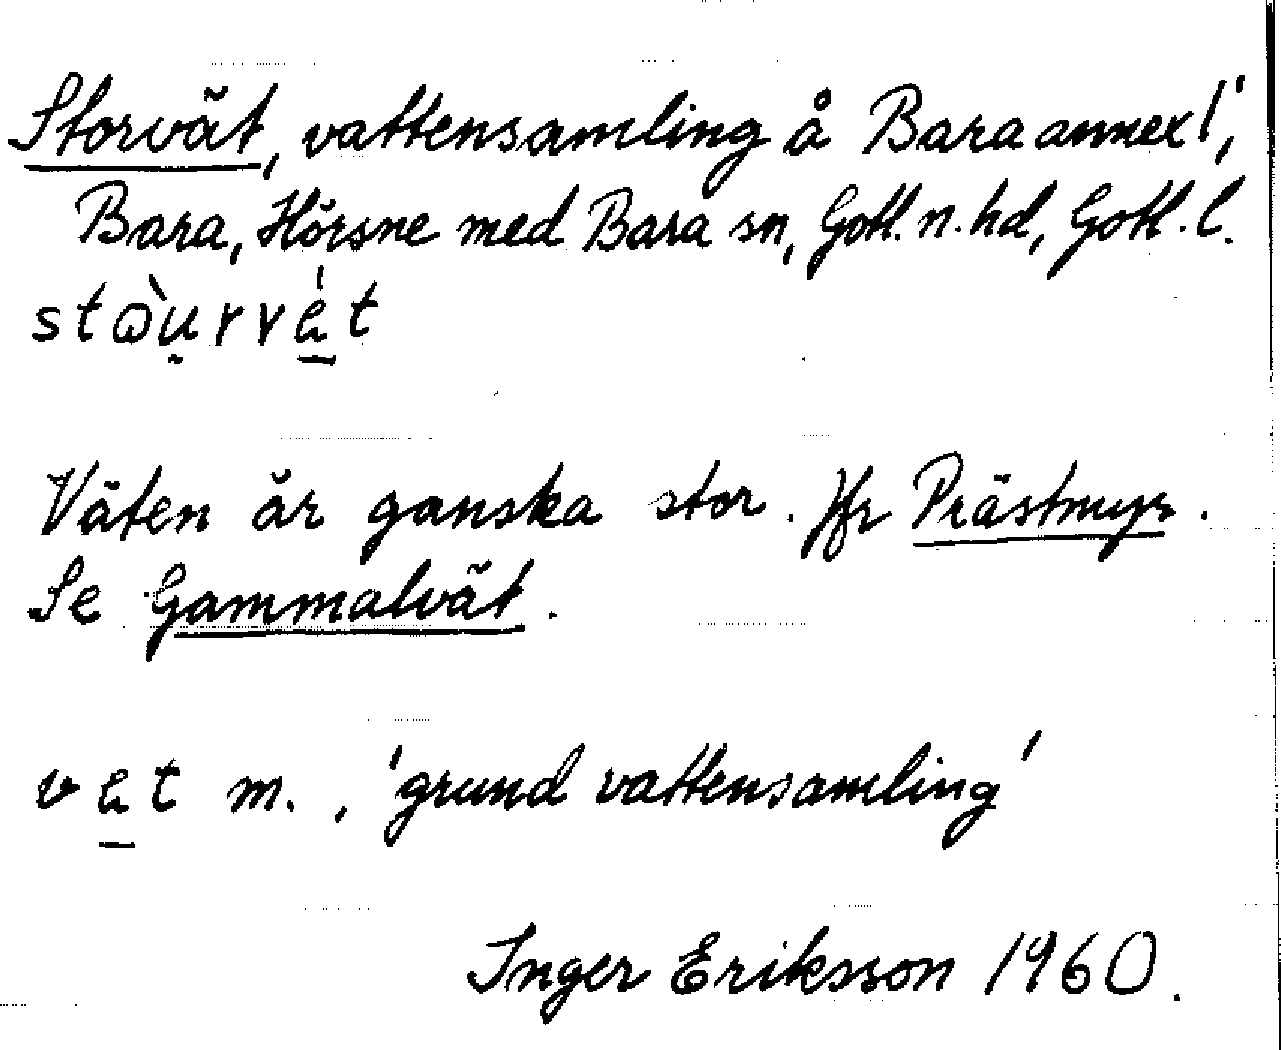 Storvät, vattensamling å Bara annex 1',
Bara, Hörsne med Bara sn, Gotl. n. hd, Gotl. l.
stɷ̀u̯rvè̠t
Väten är ganska stor. Jfr Prästmyr.
Se Gammalvät.
ve̠t m., 'grund vattensamling'
Inger Eriksson 1960.